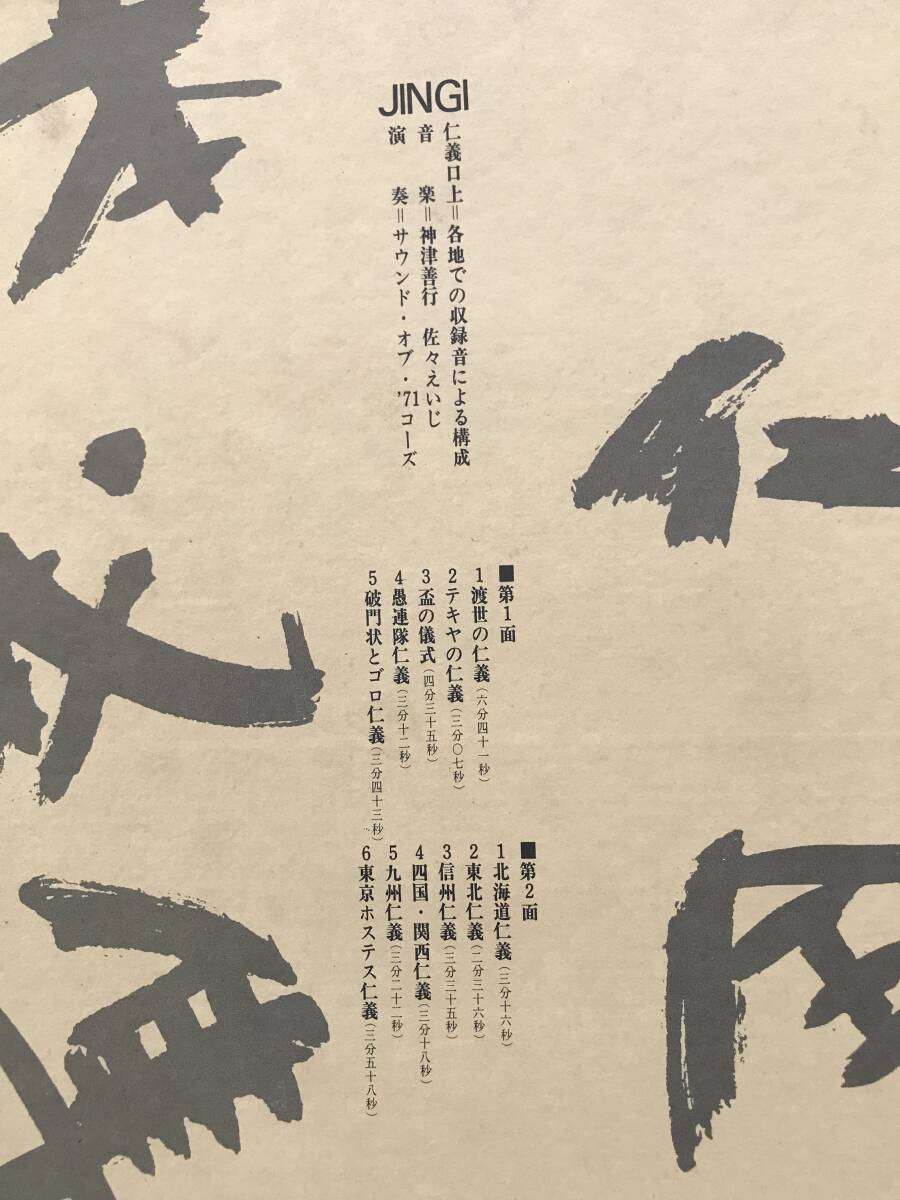 JINGI
仁義口上=各地での収録音による構成
音楽=神津善行 佐々えいじ
演奏=サウンド・オブ・'71コーズ
■第1面
1渡世の仁義(六分四十一秒)
2テキヤの仁義(三分〇七秒)
3盃の儀式(四分三十五秒)
4愚連隊仁義(三分十二秒)
5破門状とゴロ仁義(三分四十三秒)
■第2面
1北海道仁義(三分十六秒)
2東北仁義(二分三十六秒)
3信州仁義(三分三十五秒)
4四国・関西仁義(三分十八秒)
5九州仁義(三分二十二秒)
6東京ホステス仁義(三分五十八秒)
仁